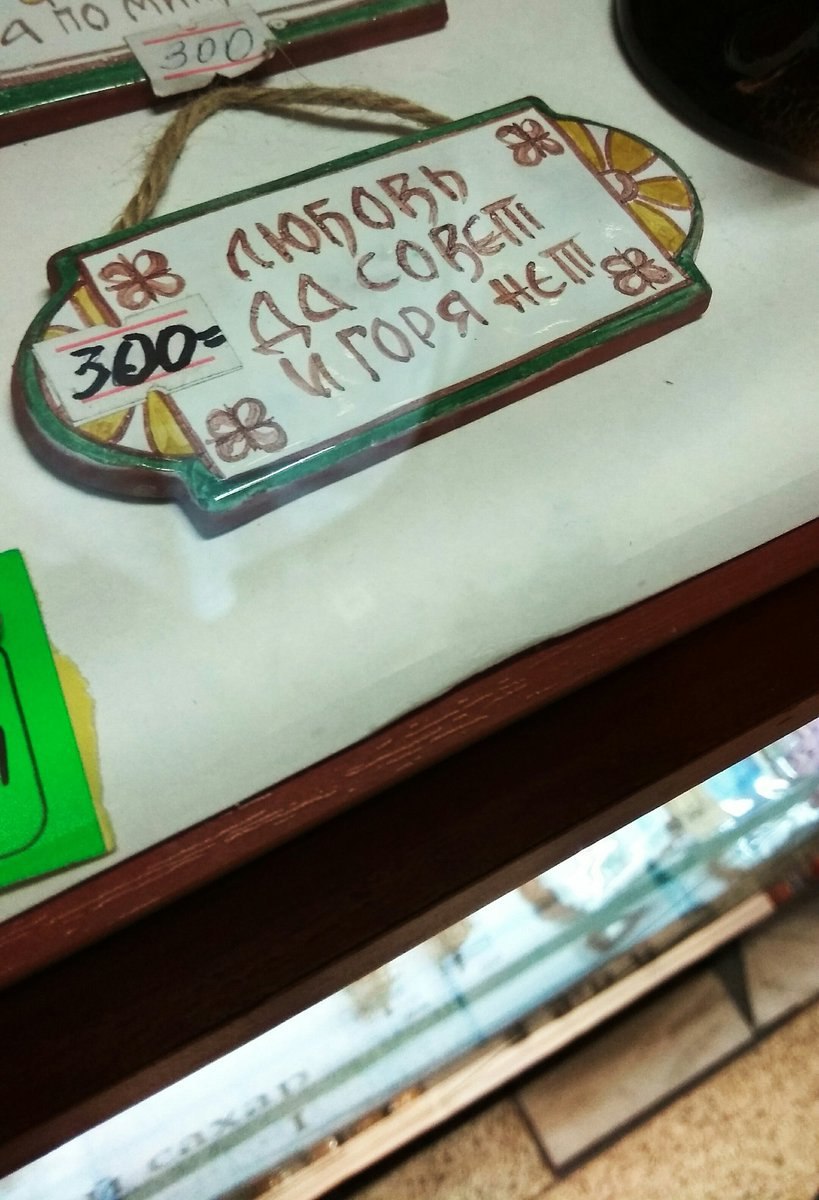 а по
300
ЛЮБОВЬ
ДА СОВЕТ
И ГОРЯ НЕТ
300=
сахар